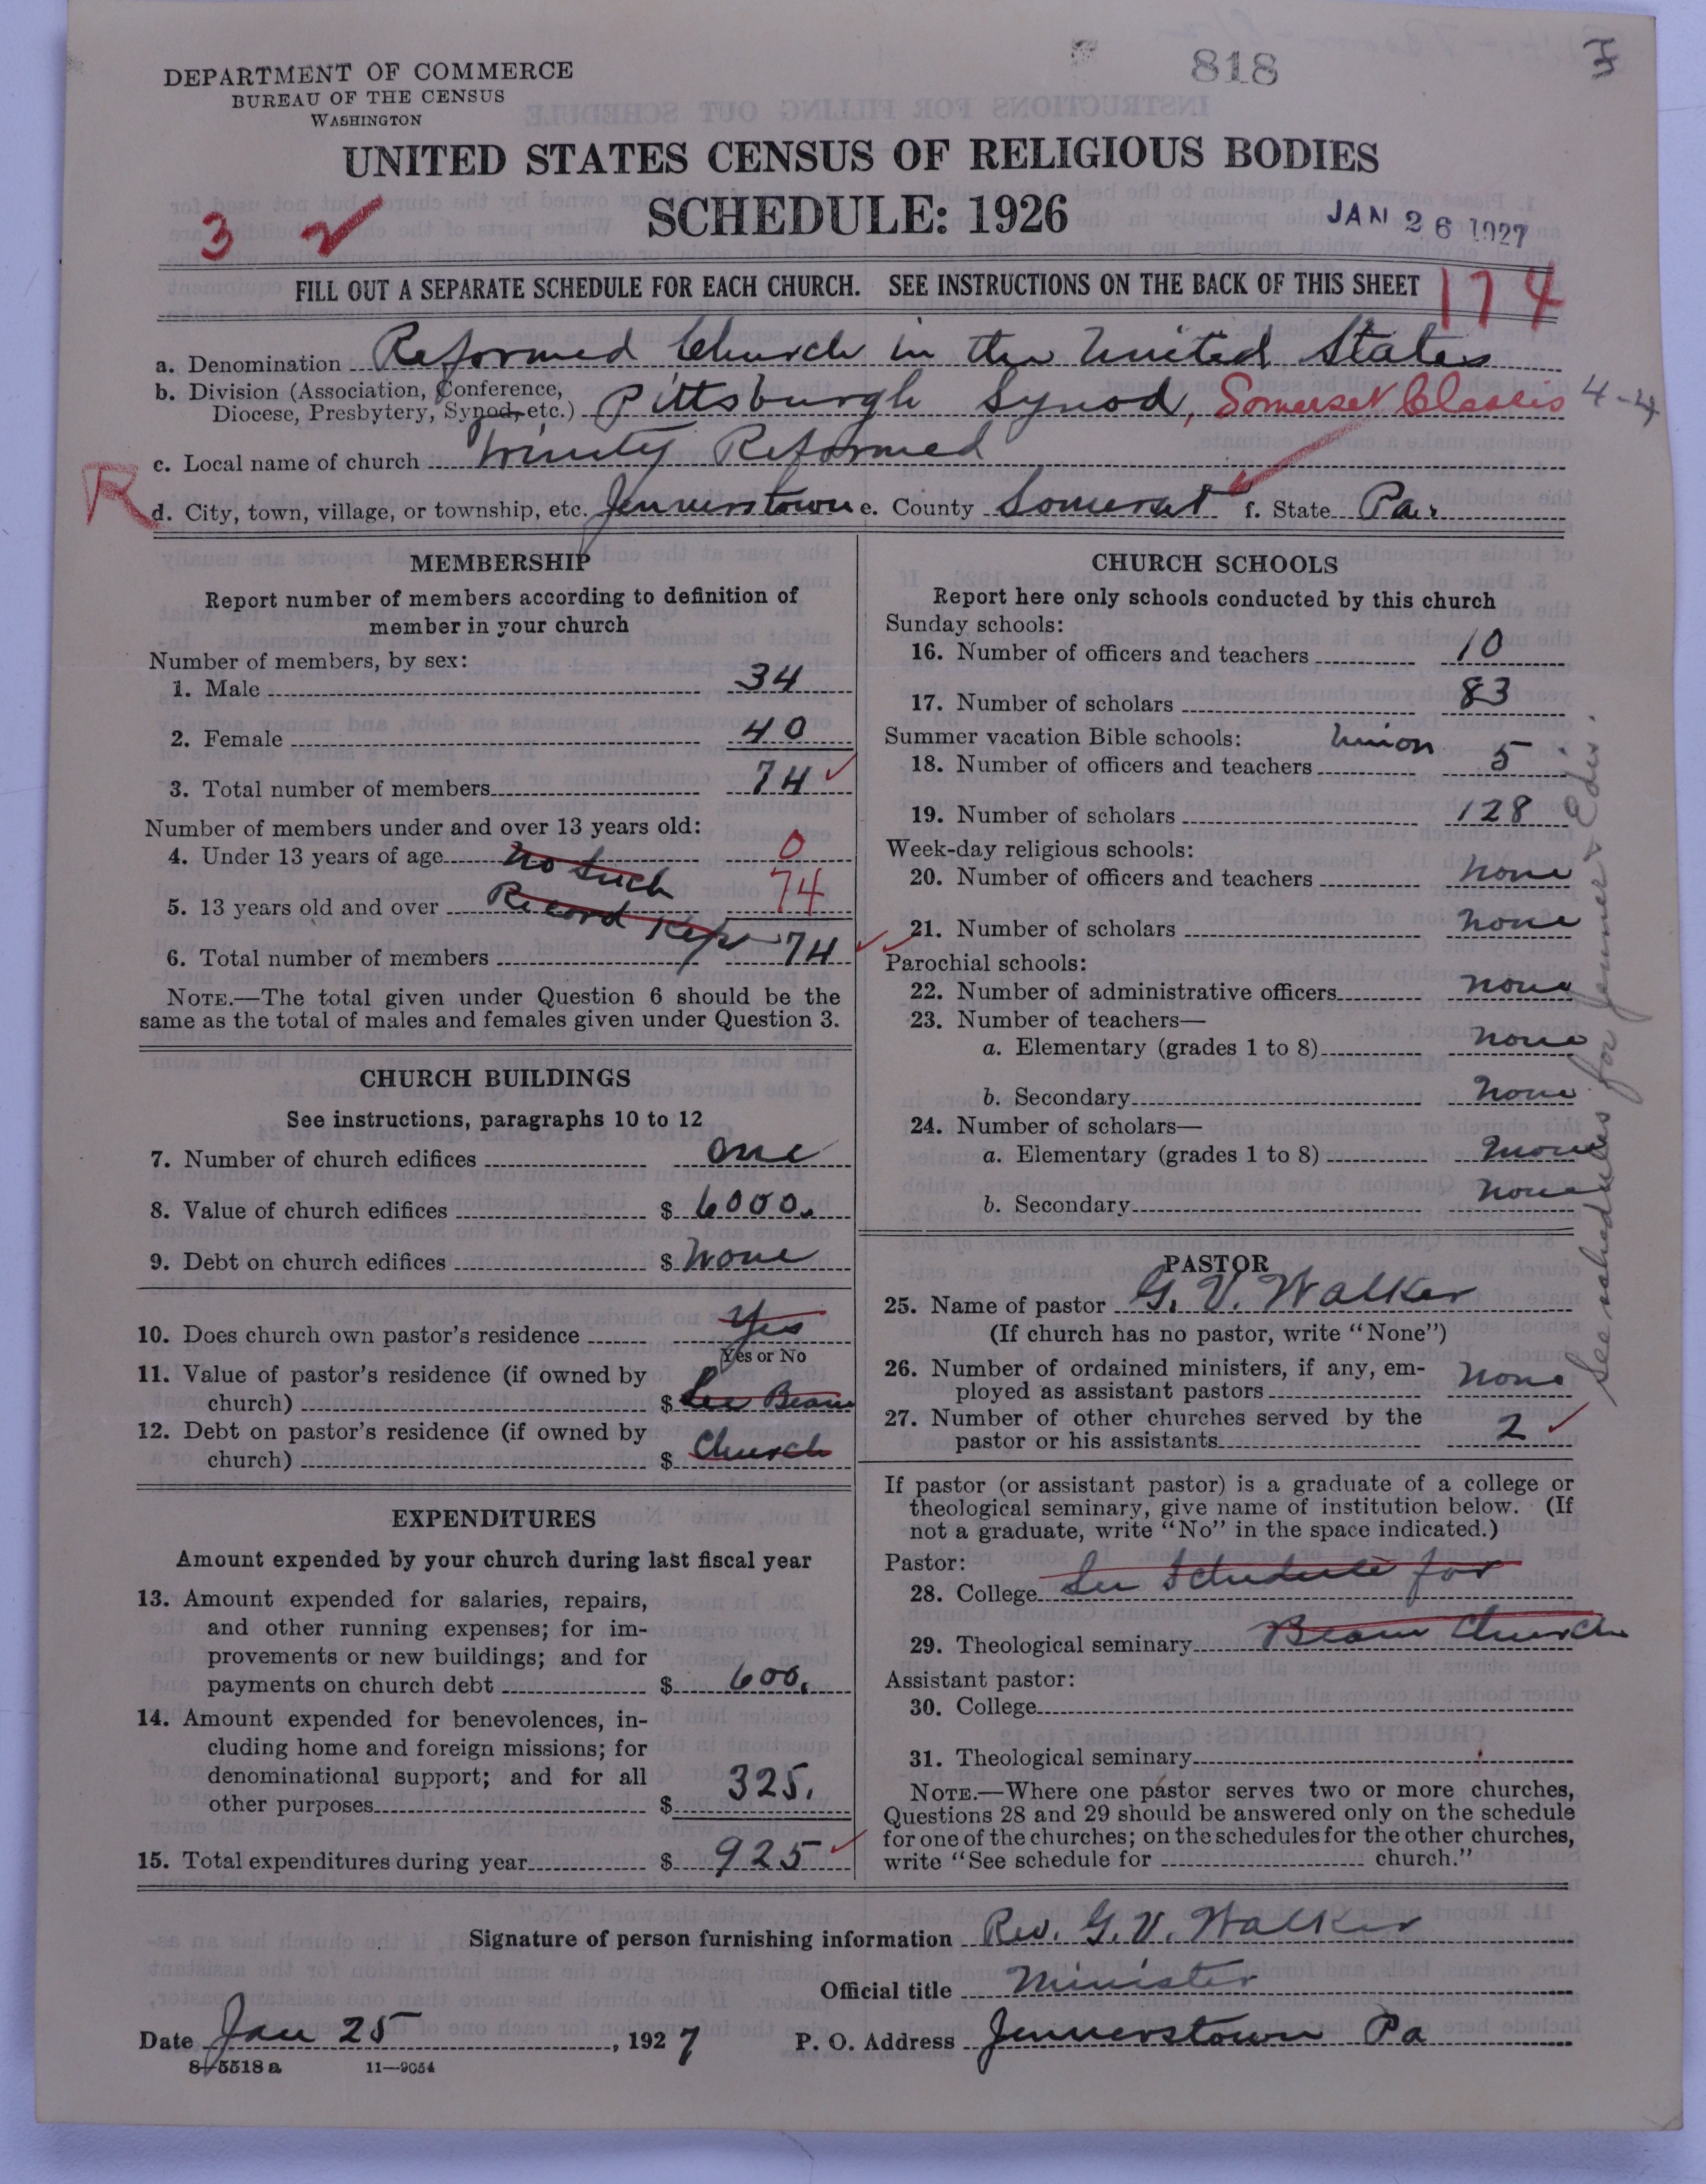 818
DEPARTMENT OF COMMERCE
BUREAU OF THE CENSUS
WASHINGTON
UNITED STATES CENSUS OF RELIGIOUS BODIES
SCHEDULE: 1926
3 2
JAN 26 1927
FILL OUT A SEPARATE SCHEDULE FOR EACH CHURCH. SEE INSTRUCTIONS ON THE BACK OF THIS SHEET
174
a. Denomination Reformed Church in the United States
b. Division (Association, Conference,
Diocese, Presbytery, Synod, etc.) Pittsburgh Synod, Somerset Classis 4-4
c. Local name of church Trinity Reformed
R
d. City, town, village, or township, etc. Jennerstown e. County Somerset f. State Pa.
MEMBERSHIP
Report number of members according to definition of
member in your church
Number of members, by sex:
1. Male 34
2. Female 40
3. Total number of members 74
Number of members under and over 13 years old:
4. Under 13 years of age No Such 0
5. 13 years old and over Record Kept 74
6. Total number of members 74
NOTE.—The total given under Question 6 should be the
same as the total of males and females given under Question 3.
CHURCH BUILDINGS
See instructions, paragraphs 10 to 12
7. Number of church edifices one
8. Value of church edifices $ 6000.
9. Debt on church edifices $ None
10. Does church own pastor's residence Yes
Yes or No
11. Value of pastor's residence (if owned by
church) $ See Beam
12. Debt on pastor's residence (if owned by
church) $ Church
EXPENDITURES
Amount expended by your church during last fiscal year
13. Amount expended for salaries, repairs,
and other running expenses; for im-
provements or new buildings; and for
payments on church debt $ 600.
14. Amount expended for benevolences, in-
cluding home and foreign missions; for
denominational support; and for all
other purposes $ 325.
15. Total expenditures during year $ 925
CHURCH SCHOOLS
Report here only schools conducted by this church
Sunday schools:
16. Number of officers and teachers 10
17. Number of scholars 83
Summer vacation Bible schools: Union
18. Number of officers and teachers 5
19. Number of scholars 128
Week-day religious schools:
20. Number of officers and teachers None
21. Number of scholars None
Parochial schools:
22. Number of administrative officers None
23. Number of teachers—
a. Elementary (grades 1 to 8) None
b. Secondary None
24. Number of scholars—
a. Elementary (grades 1 to 8) None
b. Secondary None
PASTOR
25. Name of pastor G. V. Walker
(If church has no pastor, write "None")
26. Number of ordained ministers, if any, em-
ployed as assistant pastors None
27. Number of other churches served by the
pastor or his assistants 2
If pastor (or assistant pastor) is a graduate of a college or
theological seminary, give name of institution below. (If
not a graduate, write "No" in the space indicated.)
Pastor:
28. College See Schedule for
29. Theological seminary Beam Church
Assistant pastor:
30. College
31. Theological seminary
NOTE.—Where one pastor serves two or more churches,
Questions 28 and 29 should be answered only on the schedule
for one of the churches; on the schedules for the other churches,
write "See schedule for church."
See schedules for Jenner
Signature of person furnishing information Rev. G. V. Walker
Official title Minister
Date Jan 25, 1927 P. O. Address Jennerstown Pa
8-5518 a 11—9054